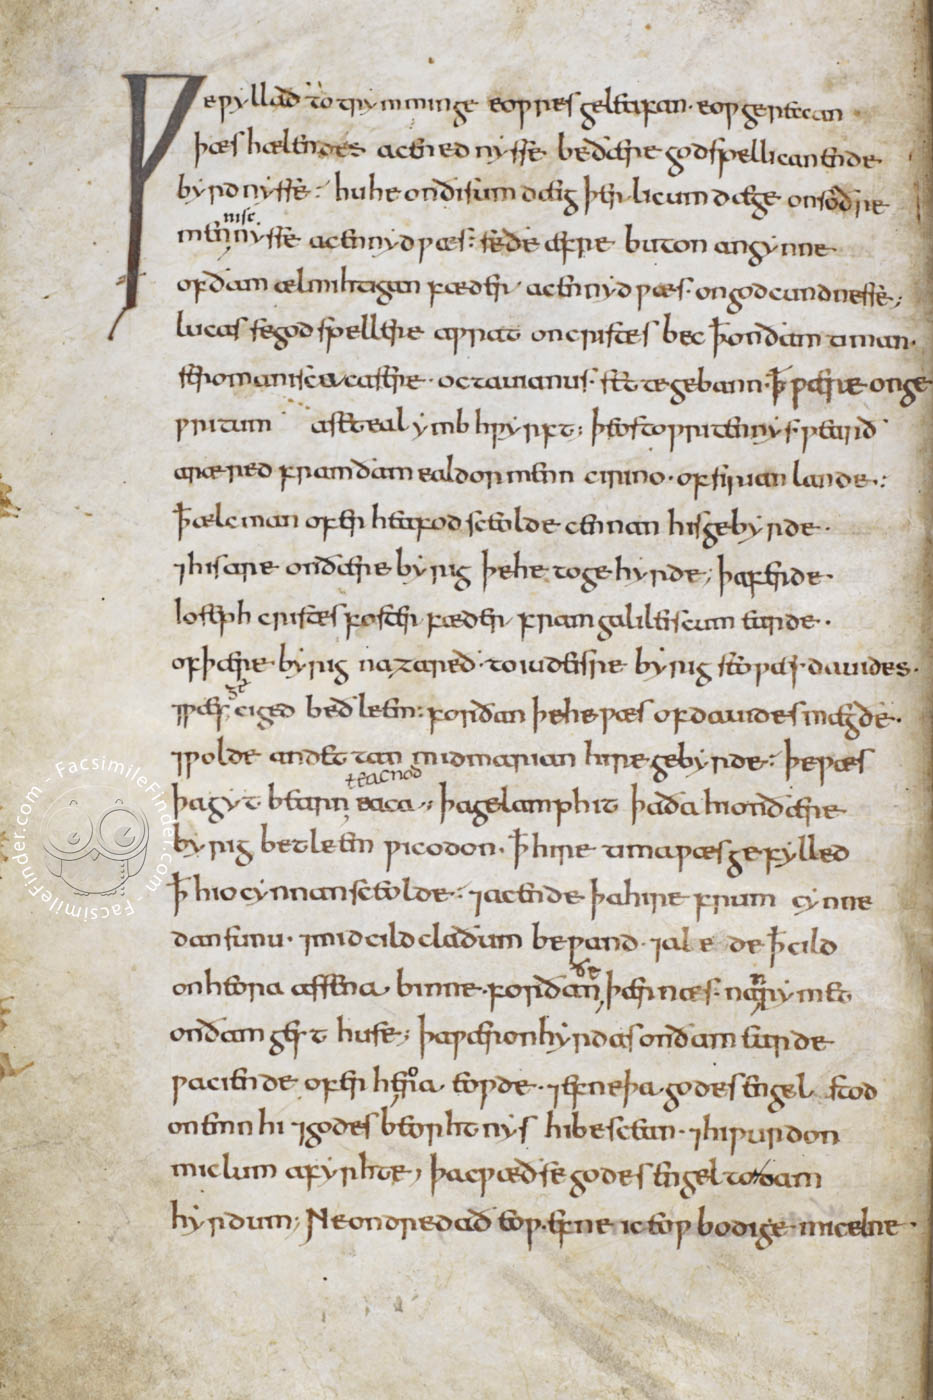 Ƿe ƿyllað to trymminge eoƿres geleafan. eoƿ gereccan
þæs hælendes acennednysse be ðære godspellican ende
byrdnysse: hu he on ðisum dæg þerlicum dæge on soðre
mennyssenise acennyd ƿæs: se ðe æfre buton angynne
of ðam ælmihtigan fæder acennyd ƿæs. on godcundnesse;
lucas se godspellere aƿrat on cristes bec ꝥ on ðam timan.
se romanisca casere. octauianus. sette gebann. ꝥ ƿære on ge
ƿritum asetteal ymbhƿyrft; þeos toƿritennys. ƿearð
aræred fram ðam ealdormenn cirino. of sirian lande.:
ꝥ ælc man ofer heafod sceolde cennan his gebyrde.
⁊ his are on ðære byrig þe he to gehyrde; þa ferde
Ioseph cristes foster fæder fram galileiscum earde.
of þære. byrig nazareð. to iudeisre byrig seo ƿæs. dauides.
⁊ ƿæs geciged beðleem: for ðan þe he ƿæs of dauides mægðe.
⁊ ƿolde andettan mid marian hire gebyrde: þe ƿæs
þa gyt bearn eaca teacnod;, þa gelamp hit þa ða hi on ðære
byrig betleem ƿicodon. ꝥ hire tima ƿæs gefylled
ꝥ hio cynnan sceolde: ⁊ acende þa hire frum cynne
dan sunu. ⁊ mid cildclaðum beƿand. ⁊ ale de ꝥ cild
on heora assena, binne. for ðan ðe þær næs. nan rymet
on ðam gest huse; þa ƿæron hyrdas on ðam earde
ƿaciende ofer heora eoƿde. ⁊ efne þa. godes engel stod
on emn hi ⁊ godes beorhtnys hi bescean. ⁊ hi ƿurdon
miclum afyrhte; þa cƿæð se godes engel to ðam
hyrdum; Ne ondredað eoƿ. efne ic eoƿ bodige micelne.
FacsimileFinder.com - FacsimileFinder.com -